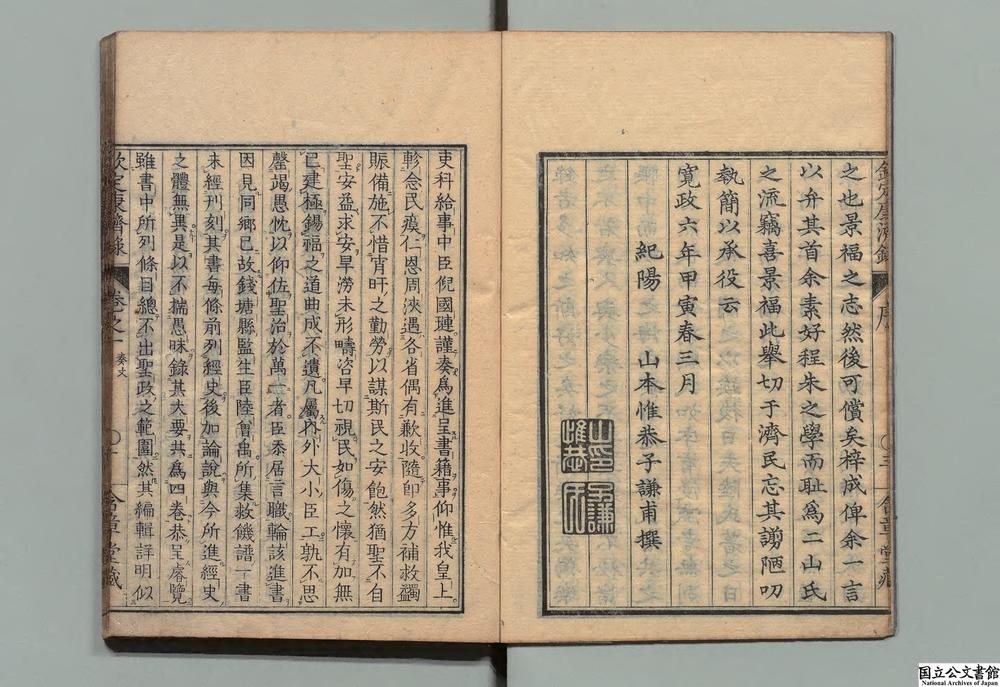 之也景福之志然後可償矣梓成俾余一言
以弁其首余素好程朱之學而耻爲二山氏
之流竊喜景福此擧切于濟民忘其謭陋叨
執簡以承役云
寬政六年甲寅春三月
紀陽 山本惟恭子謙甫撰
山本惟恭
子謙
欽定康濟錄 序 〇三 含章堂藏
吏科給事中臣倪國璉謹奏爲進呈書籍事仰惟我皇上
軫念民瘼仁恩周浹遇各省偶有歉收隨即多方補救蠲
賑備施不惜宵旰之勤勞以謀斯民之安飽然猶聖不自
聖安益求安旱澇未形疇咨早切視民如傷之懷有加無
已建極錫福之道曲成不遺凡屬内外大小臣工孰不思
罄竭愚忱以仰佐聖治於萬一者臣忝居言職輪該進書
因見同鄉已故錢塘縣監生臣陸曾禹所集救饑譜一書
未經刊刻其書每條前列經史後加論說與今所進經史
之體無異是以不揣愚昧錄其大要共爲四卷恭呈睿覽
雖書中所列條目總不出聖政之範圍然其編輯詳明似
欽定康濟錄 卷之一 奏文 〇一 含章堂藏
国立公文書館
National Archives of Japan